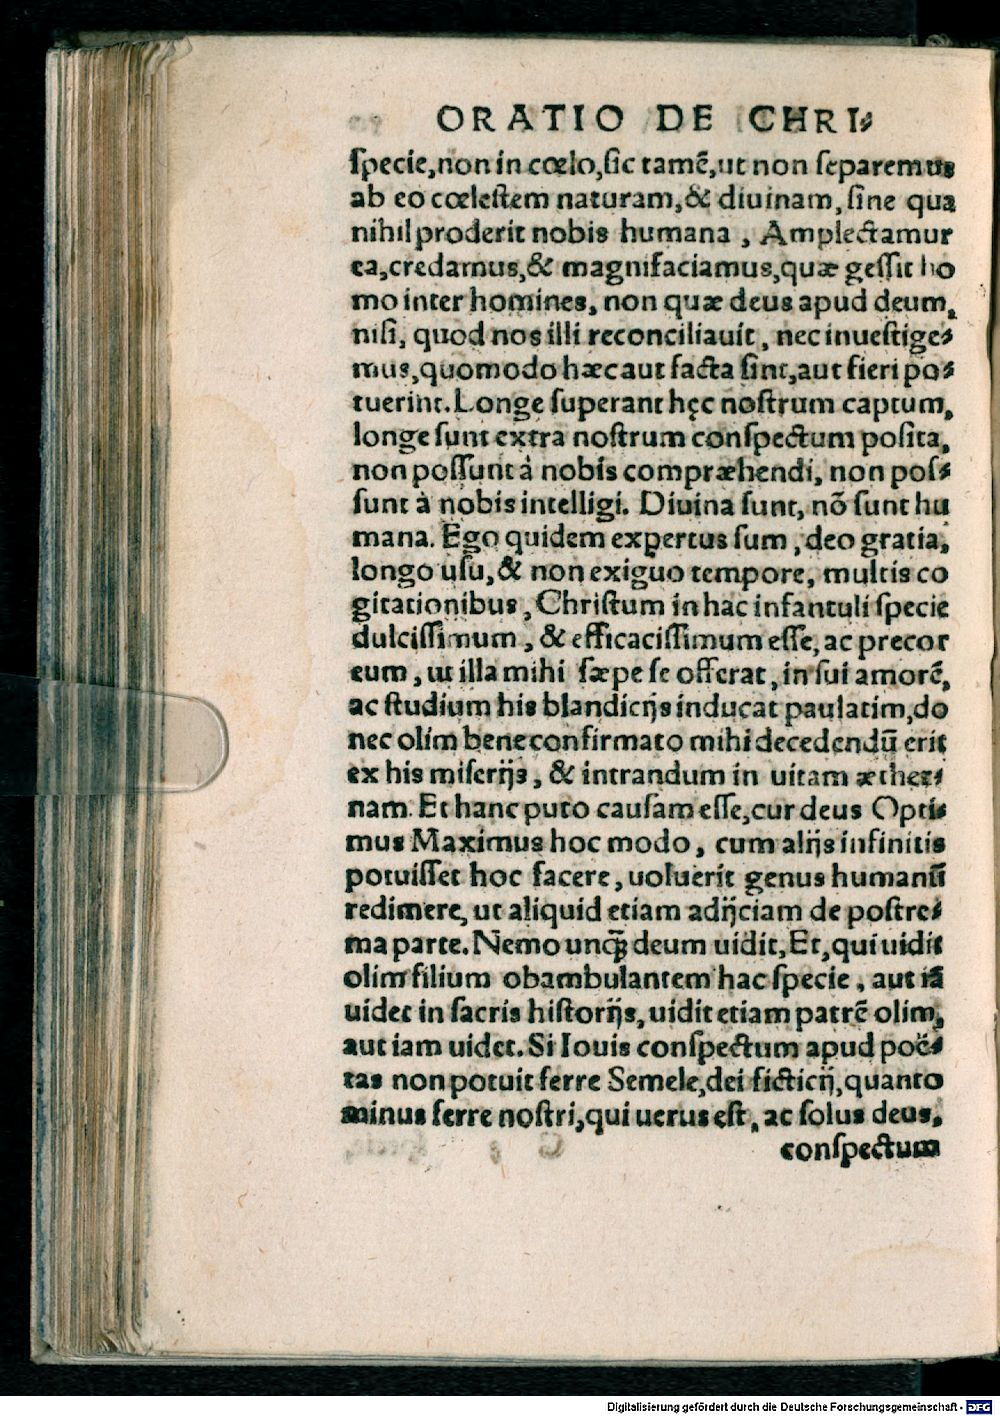 ORATIO DE CHRI⸗
ſpecie, non in cœlo, ſic tamẽ, ut non ſeparemus
ab eo cœleſtem naturam, & diuinam, ſine qua
nihil proderit nobis humana, Amplectamur
ea, credamus, & magnifaciamus, quæ geſſit ho
mo inter homines, non quæ deus apud deum,
niſi, quod nos illi reconciliauit, nec inueſtige⸗
mus, quomodo hæc aut facta ſint, aut fieri po⸗
tuerint. Longe ſuperant hęc noſtrum captum,
longe ſunt extra noſtrum conſpectum poſita,
non poſſunt à nobis compræhendi, non poſ⸗
ſunt à nobis intelligi. Diuina ſunt, nõ ſunt hu
mana. Ego quidem expertus ſum, deo gratia,
longo uſu, & non exiguo tempore, multis co
gitationibus, Chriſtum in hac infantuli ſpecie
dulciſſimum, & efficaciſſimum eſſe, ac precor
eum, ut illa mihi ſæpe ſe offerat, in ſui amorẽ,
ac ſtudium his blandicijs inducat paulatim, do
nec olim bene confirmato mihi decedendũ erit
ex his miſerijs, & intrandum in uitam æther⸗
nam. Et hanc puto cauſam eſſe, cur deus Opti⸗
mus Maximus hoc modo, cum alijs infinitis
potuiſſet hoc facere, uoluerit genus humanũ
redimere, ut aliquid etiam adijciam de poſtre⸗
ma parte. Nemo unq̃ deum uidit, Et, qui uidit
olim filium obambulantem hac ſpecie, aut iã
uidet in ſacris hiſtorijs, uidit etiam patrẽ olim,
aut iam uidet. Si Iouis conſpectum apud poë⸗
tas non potuit ferre Semele, dei ficticij, quanto
minus ferre noſtri, qui uerus eſt, ac ſolus deus,
conſpectum
Digitalisierung gefördert durch die Deutsche Forschungsgemeinschaft - DFG